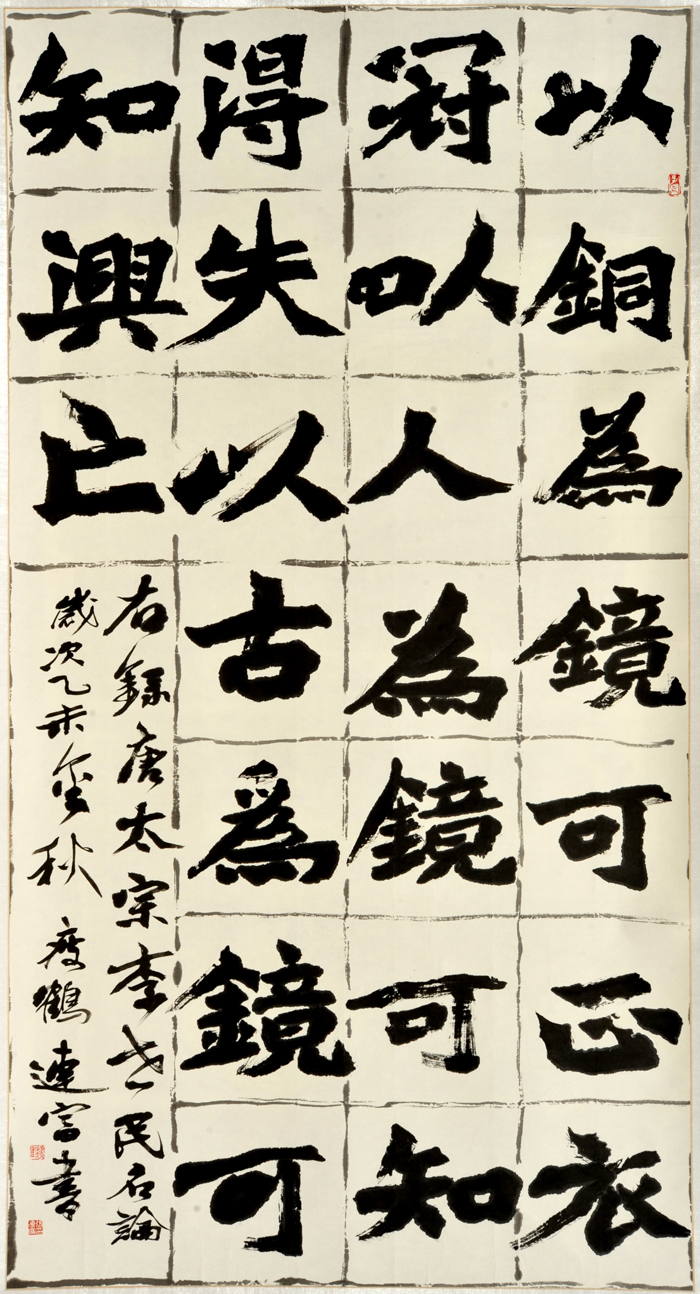 以銅為鏡可正衣
冠以人為鏡可知
得失以古為鏡可
知興亡
右錄唐太宗李世民名論
歲次乙未金秋瘦鶴連富書